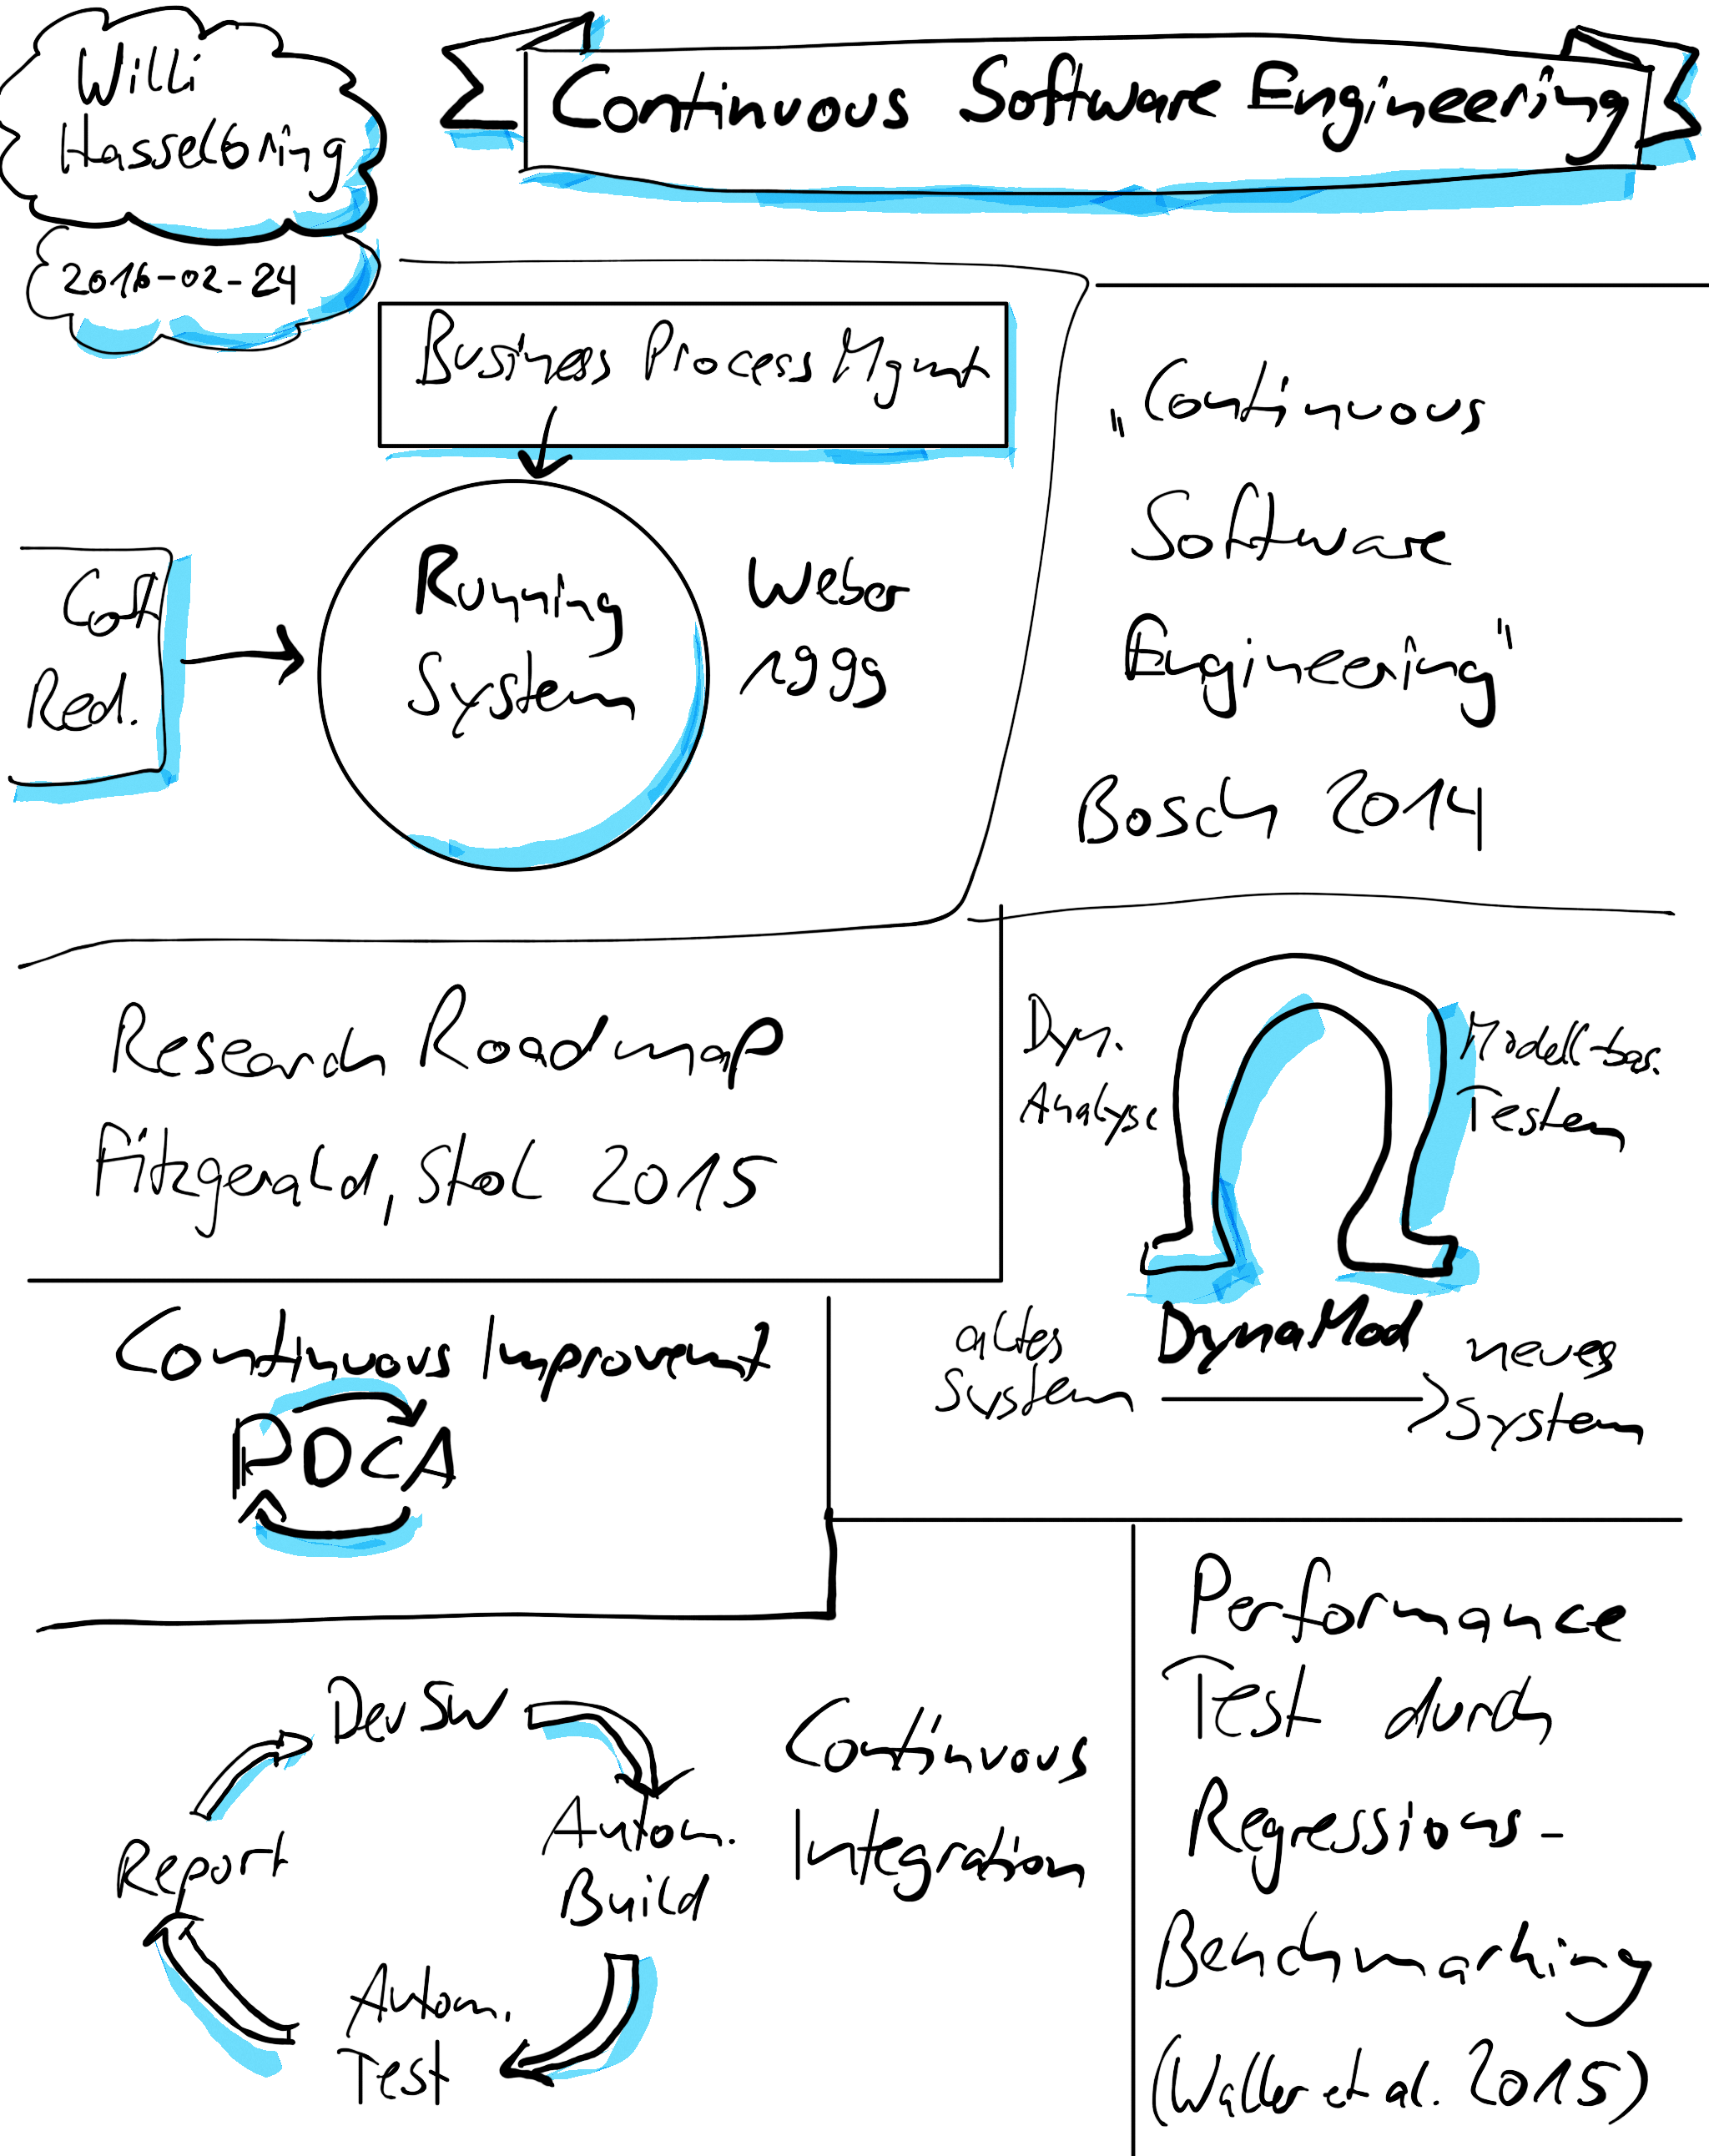 Willi
Hasselbring
2016-02-24
Continuous Software Engineering
Business Process Mgmt
Running
System
Weber
1999
Red.
„Continuous
Software
Engineering"
Bosch 2014
Research Roadmap
Fitzgerald, Stol 2015
Dyn.
Analyse
Modell-bas.
Testen
DynaMod
altes
System
neues
System
Continuous Improvemt
PDCA
Dev SW
Autom.
Build
Autom.
Test
Report
Continuous
Integration
Performance
Test durch
Regressions-
Benchmarking
(Waller et al. 2015)